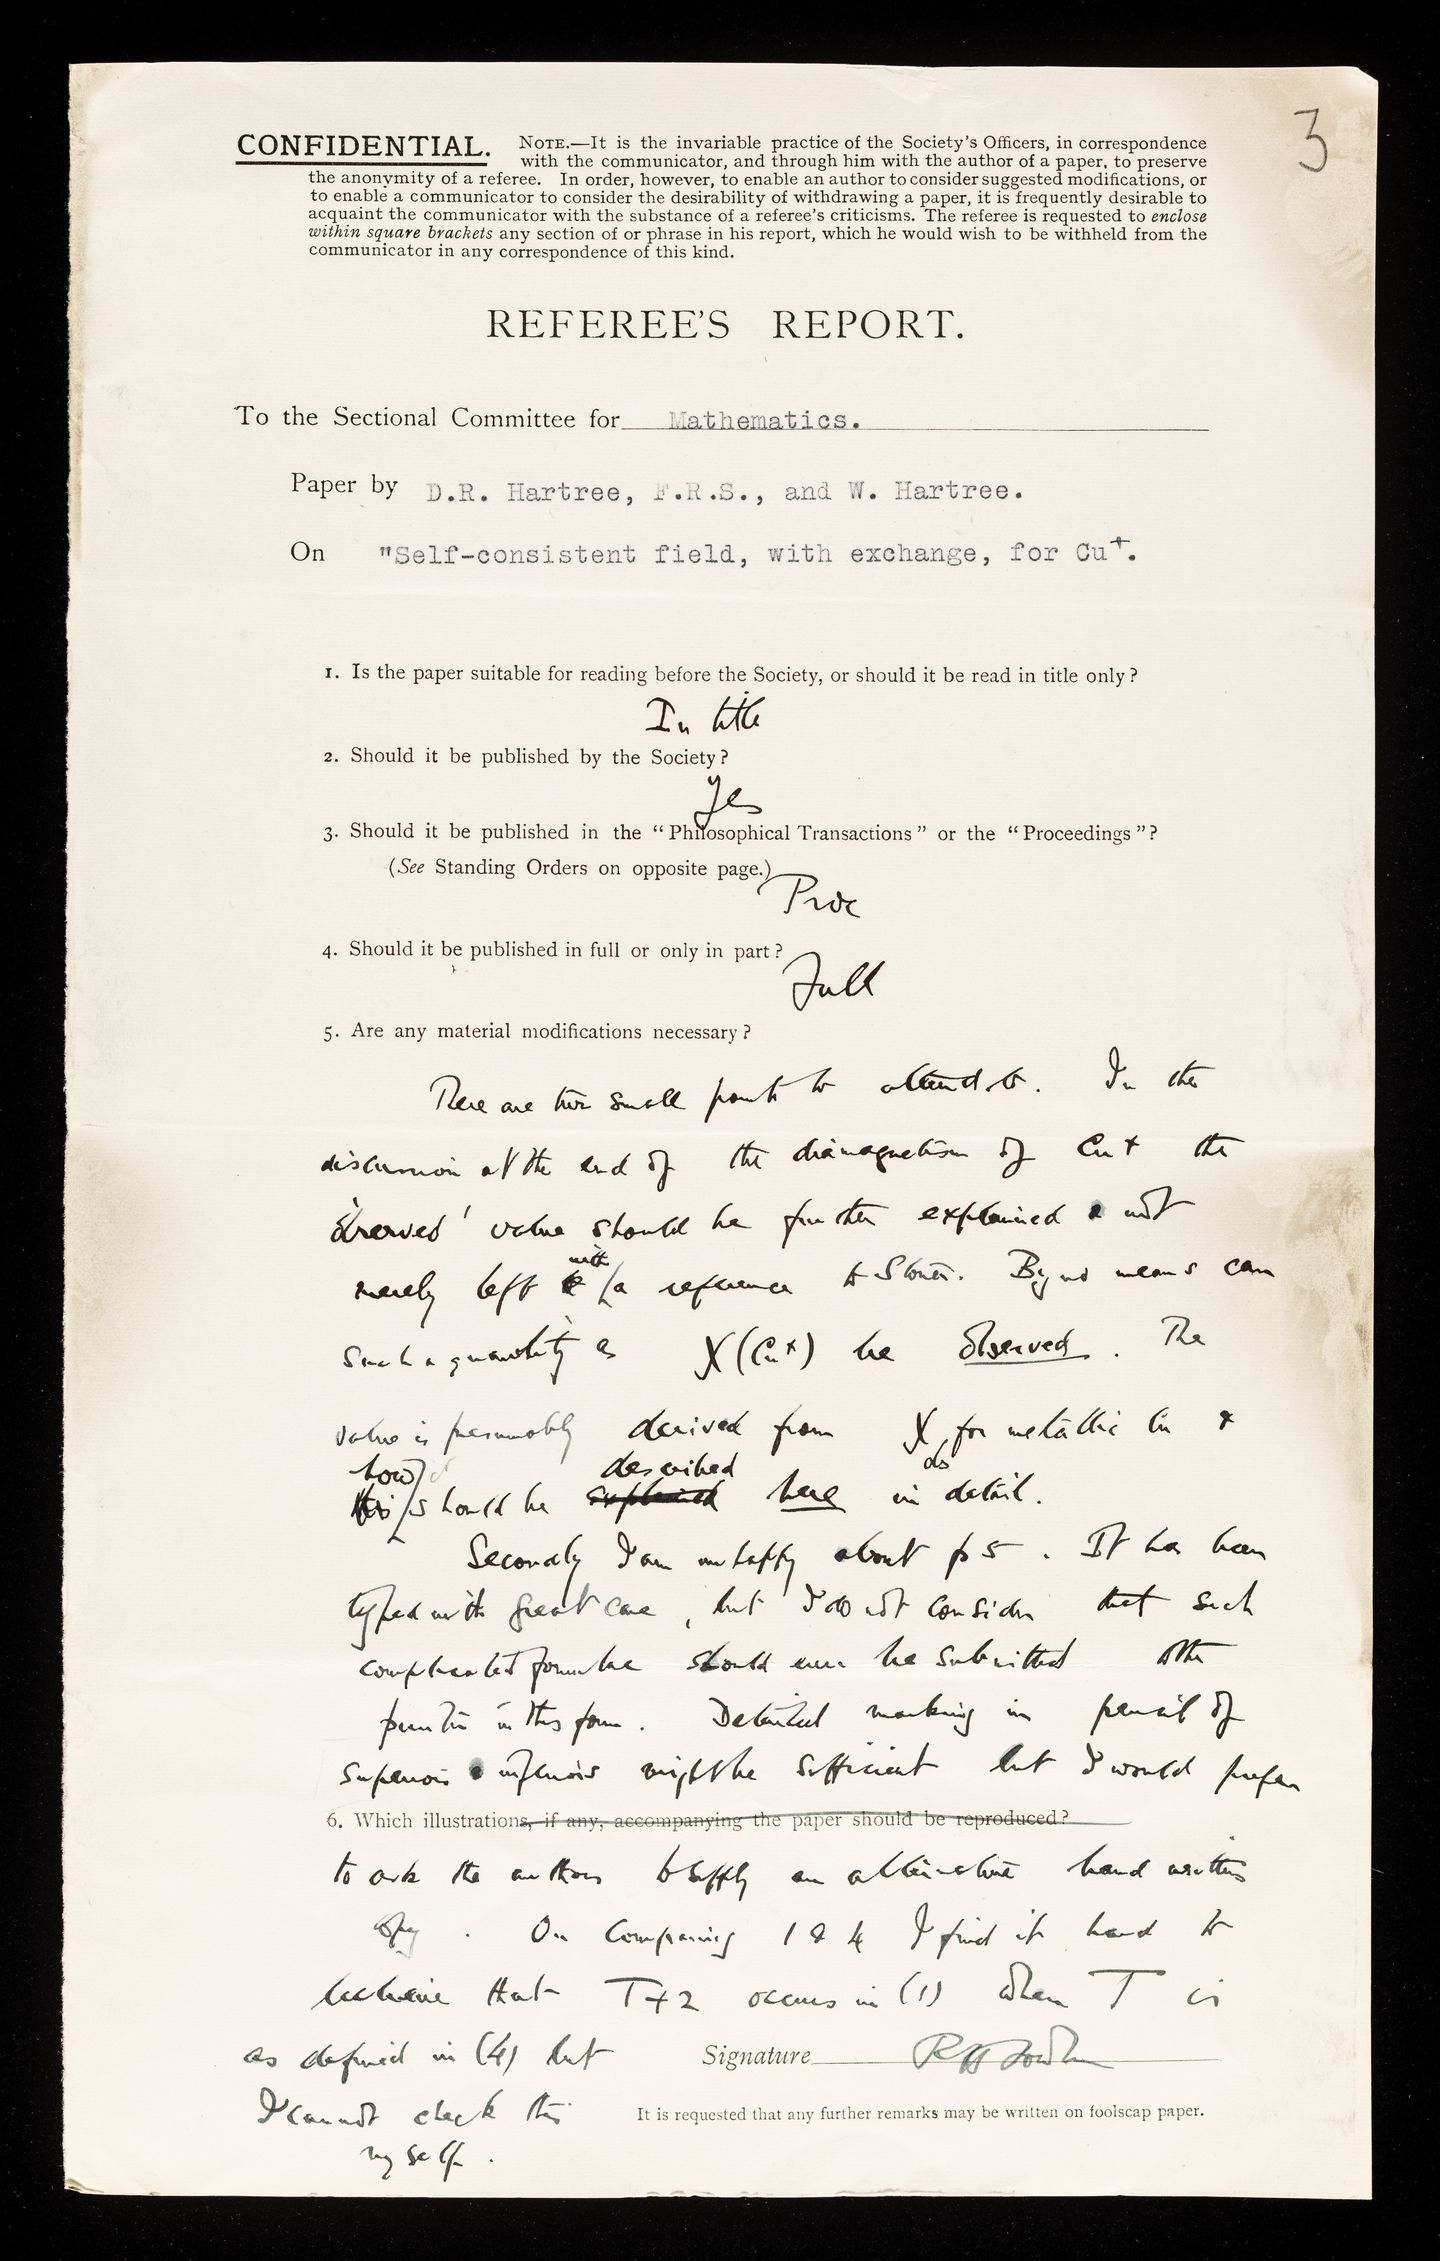 3
CONFIDENTIAL. NOTE.—It is the invariable practice of the Society's Officers, in correspondence
with the communicator, and through him with the author of a paper, to preserve
the anonymity of a referee. In order, however, to enable an author to consider suggested modifications, or
to enable a communicator to consider the desirability of withdrawing a paper, it is frequently desirable to
acquaint the communicator with the substance of a referee's criticisms. The referee is requested to enclose
within square brackets any section of or phrase in his report, which he would wish to be withheld from the
communicator in any correspondence of this kind.
REFEREE'S REPORT.
To the Sectional Committee for Mathematics.
Paper by D.R. Hartree, F.R.S., and W. Hartree.
On "Self-consistent field, with exchange, for Cu+.
1. Is the paper suitable for reading before the Society, or should it be read in title only?
In title
2. Should it be published by the Society?
Yes
3. Should it be published in the "Philosophical Transactions" or the "Proceedings"?
(See Standing Orders on opposite page.)
Proc
4. Should it be published in full or only in part?
Full
5. Are any material modifications necessary?
There are two small points to attend to. In the
discussion at the end of the diamagnetism of Cu+ the
'observed' value should be further explained & not
merely left with a reference to Stoner. By no means can
such a quantity as χ(Cu+) be observed. The
value is presumably derived from χ for metallic Cu &
how should be described here in detail.
Secondly I am unhappy about p 5. It has been
typed with great care, but I do not consider that such
complicated formulae should ever be submitted to the
printer in this form. Detailed marking in pencil of
superiors & inferiors might be sufficient but I would prefer
6. Which illustrations, if any, accompanying the paper should be reproduced?
to ask the authors to supply an alternative hand written
copy. On comparing 1 & 4 I find it hard to
believe that T+2 occurs in (1) when T is
as defined in (4) but
Signature RH Fowler
I cannot check this
It is requested that any further remarks may be written on foolscap paper.
myself.